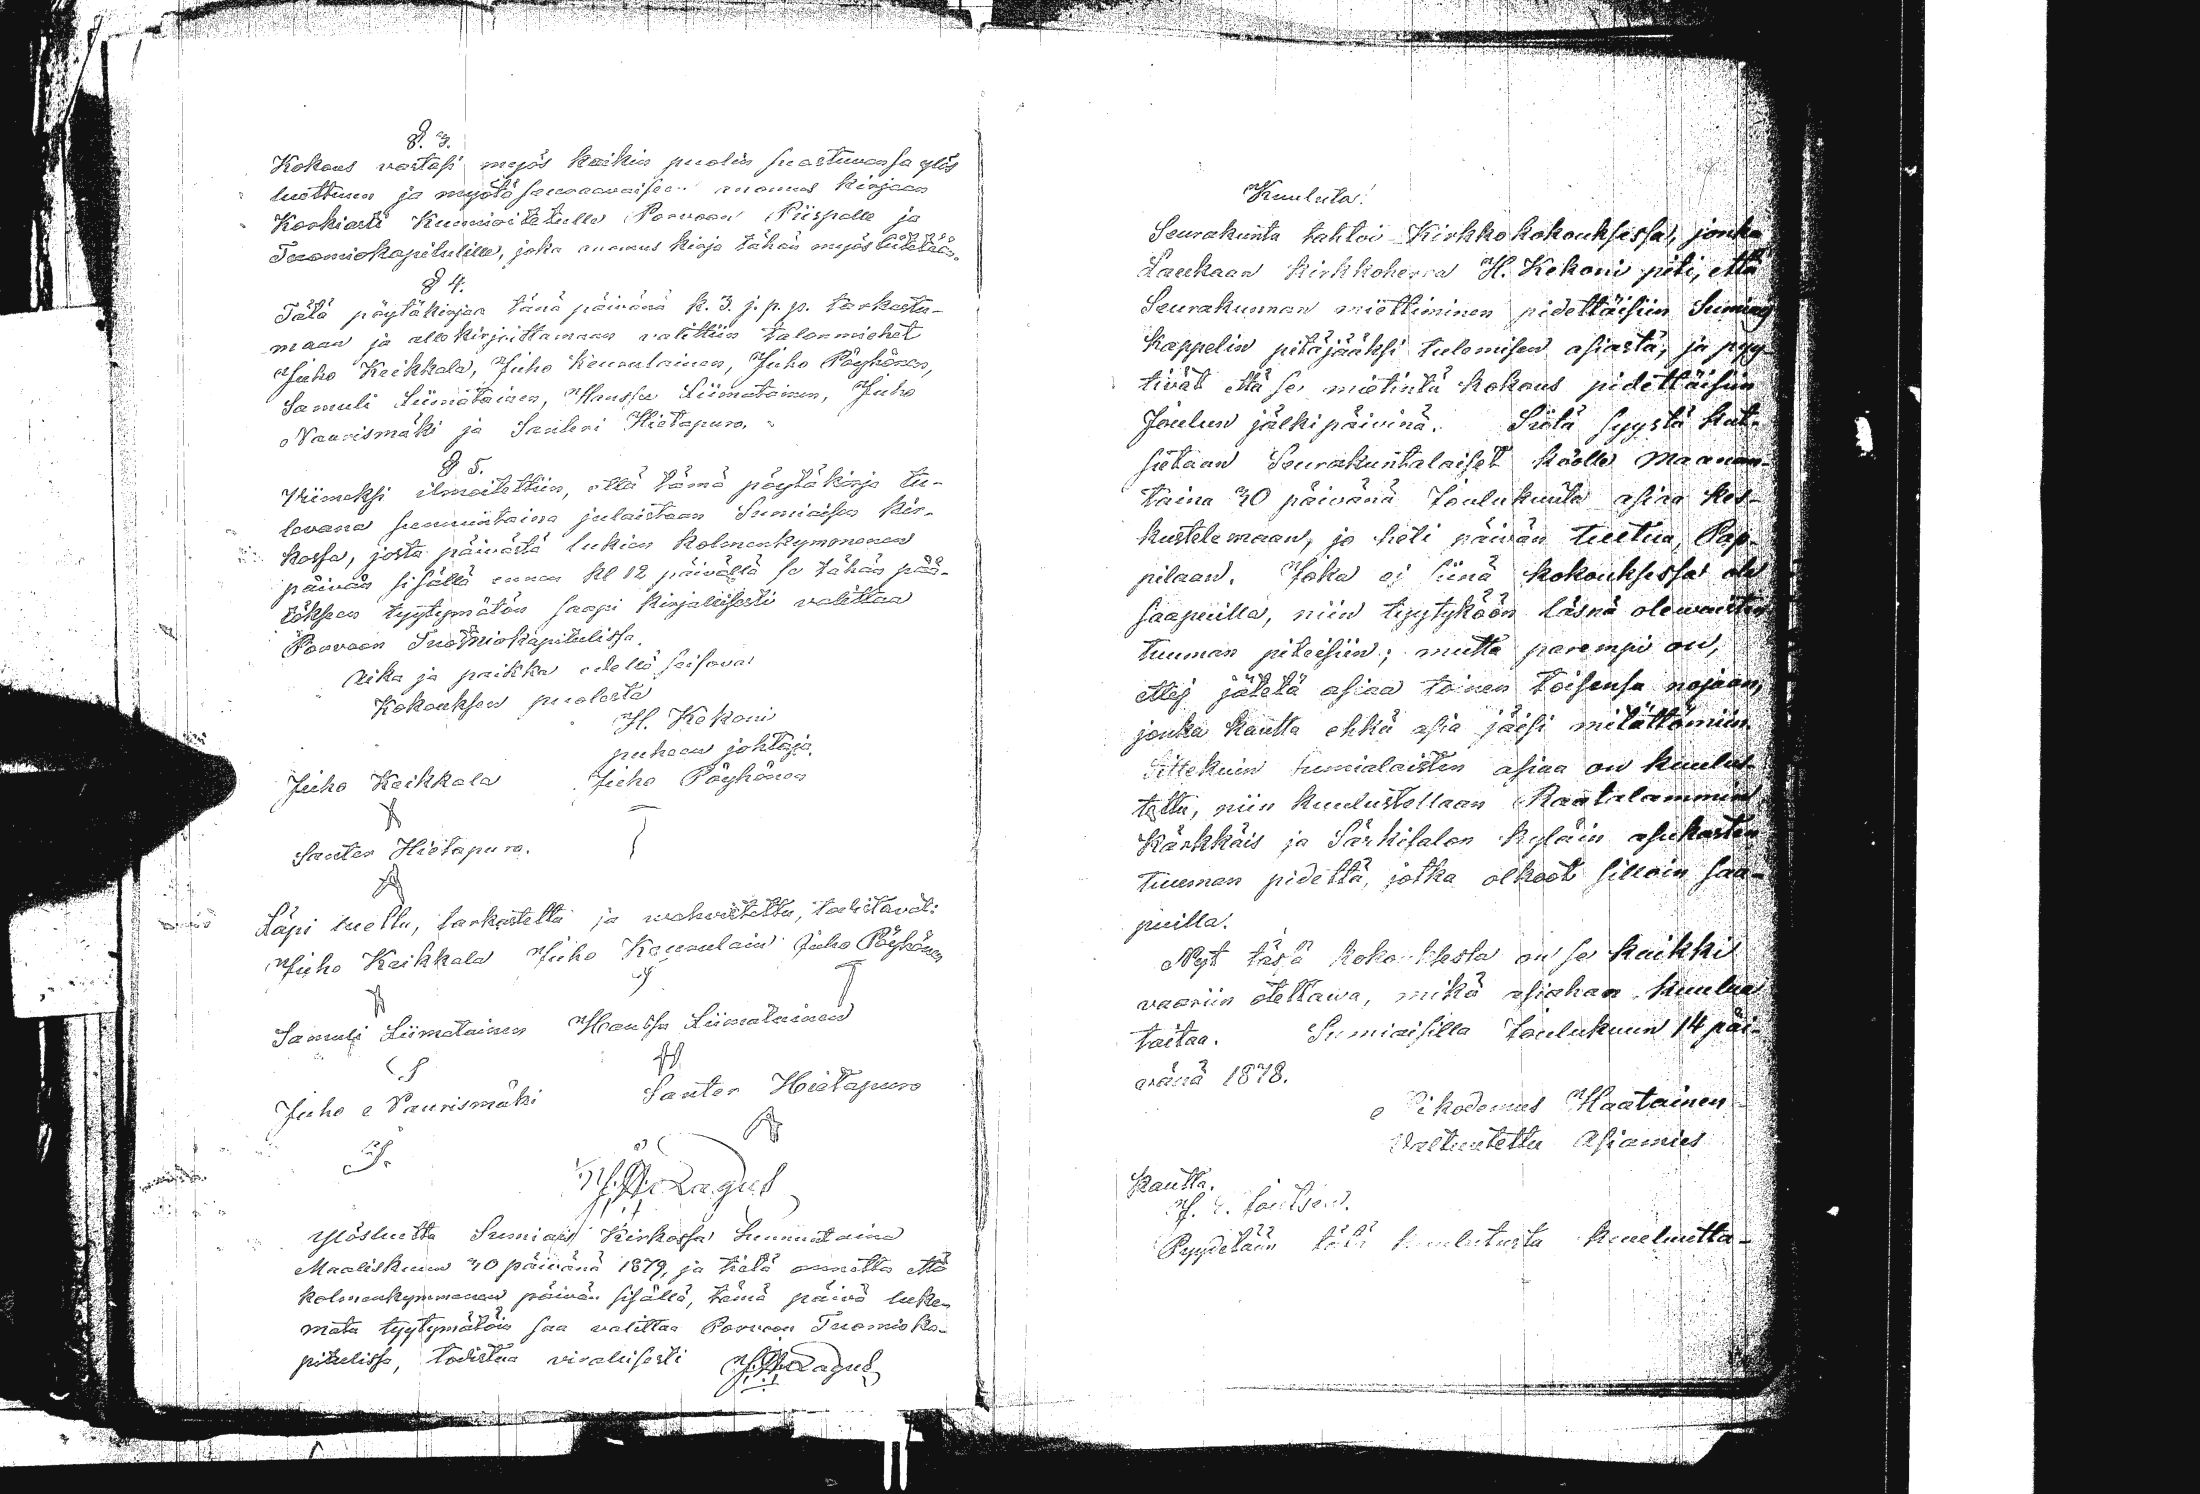 §. 3.
Kokous vastasi myös kaikin puolin suostuvansa ylös
luettuun ja myötä seuraavaiseen anomus kirjaan
Korkiasti Kunnioitetulle Porvoon Piispalle ja
Tuomiokapitulille, joka anomus kirja tähän myös liitetään.
§ 4.
Tätä pöytäkirjaa tänä päivänä k. 3. j. p. p. tarkastu-
maan ja allekirjoittamaan valittiin talonmiehet
Juho Keikkala, Juho Keuvulainen, Juho Pöyhönen,
Samuli Liimatainen, Hanssu Liimatainen, Juho
Naurismäki ja Santeri Hietapuro.
§ 5.
Viimeksi ilmoitettiin, että tämä pöytäkirja tu-
levana sunnuntaina julaistaan Sumiaisen kir-
kossa, josta päivästä lukien kolmenkymmenen
päivän sisällä ennen kl 12 päivällä se tähän pää-
tökseen tyytymätön saapi kirjallisesti valittaa
Porvoon Tuomiokapitulissa.
Aika ja paikka edellä seisova
Kokouksen puolesta
H. Kekoni
puheen johtaja.
Juho Keikkala Juho Pöyhönen
Santer Hietapuro.
Läpi luettu, tarkastettu ja wahvistettu, todistavat:
Juho Keikkala Juho Keuvulain Juho Pöyhönen
Samuli Liimatainen Hanssu Liimatainen
Juho Naurismäki Santer Hietapuro
Ylösluettu Sumiais Kirkossa Sunnuntaina
Maaliskuun 30 päivänä 1879, ja tietä annettu että
kolmenkymmenen päivän sisällä, tämä päivä luke-
mata tyytymätöin saa valittaa Porvoon Tuomioka-
pitulissa, todistaa virallisesti
Kuuluta!
Seurakunta tahtoi Kirkkokokouksessa, jonka
Laukaan kirkkoherra H. Kekoni piti, että
Seurakunnan miettiminen pidettäisiin Sumiais
kappelin pitäjääksi tulemisen asiasta, ja pyy-
tivät että se mietintä kokous pidettäisiin
Joulun jälkipäivinä. Siitä syystä kut-
sutaan Seurakuntalaiset koolle maanan-
taina 30 päivänä Joulukuuta asiaa kes-
kustelemaan, jo heti päivän tultua, Pap-
pilaan. Joka ej siinä kokouksessa ole
saapuilla, niin tyytyköön läsnä olewaisten
tuuman piteisiin; mutta parempi on,
ettej jätetä asiaa toinen toisensa nojaan,
jonka kautta ehkä asia jäisi mitättömiin.
Sittekuin sumialaisten asiaa on kuulus-
tettu, niin kuulustellaan Rautalammin
Kärkkäis ja Särkisalon kyläin asukasten
tuuman pidettä, jotka olkoot silloin saa-
puilla.
Nyt tässä kokouksesta on se kaikki
vaariin otettawa, mikä asiahan kuulua
taitaa. Sumiaisilla Joulukuun 14 päi-
vänä 1878.
Nikodemus Haatainen
Valtuutettu Asiamies
kautta.
Pyydetään tätä kuulutusta kuulutta-